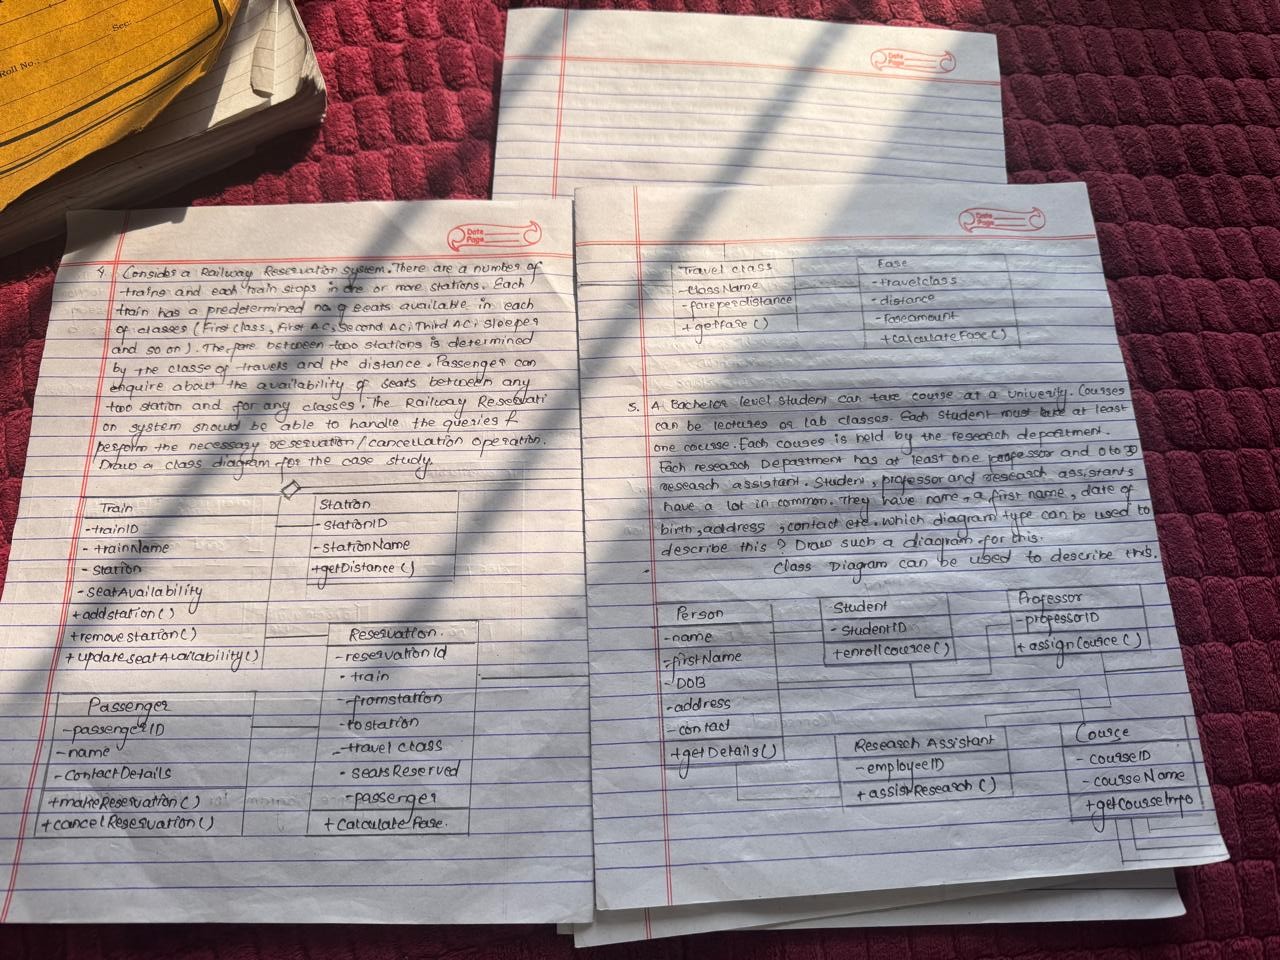 Sec:
Roll No.:
Date
Page
Date
Page
4. Consider a Railway Reservation system. There are a number of
trains and each train stops in one or more stations. Each
train has a predetermined no. of seats available in each
of classes (First class, First AC, Second AC, Third AC, Sleeper
and so on). The fare between two stations is determined
by the classe of travels and the distance. Passenger can
enquire about the availability of seats between any
two station and for any classes. The Railway Reservati
on system should be able to handle the queries &
perform the necessary reservation/cancellation operation.
Draw a class diagram for the case study.
Train
-trainID
-trainName
-Station
-seatAvailability
+addstation()
+removestation()
+updateSeatAvailability()
Station
-StationID
-StationName
+getDistance()
Reservation.
-reservationId
-train
-fromstation
-tostation
-travel class
-seatsReserved
-passenger
+Calculate Fare.
Passenger
-passengerID
-name
-ContactDetails
+makeReservation()
+cancelReservation()
Date
Page
Travel class
-ClassName
-fareperdistance
+getfare()
Fare
-travelclass
-distance
-fareamount
+calculateFare()
5. A Bachelor level student can take course at a University. Courses
can be lectures or lab classes. Each student must take at least
one course. Each courses is held by the research department.
Each research Department has at least one professor and 0 to 30
research assistant. Student, professor and research assistants
have a lot in common. They have name, a first name, date of
birth, address, contact etc. which diagram type can be used to
describe this? Draw such a diagram for this.
Class Diagram can be used to describe this.
Person
-name
-firstName
-DOB
-address
-contact
+getDetails()
Student
-StudentID
+enrollcource()
Professor
-professorID
+assignCource()
Research Assistant
-employeeID
+assistResearch()
Cource
-courseID
-courseName
+getCourseInfo